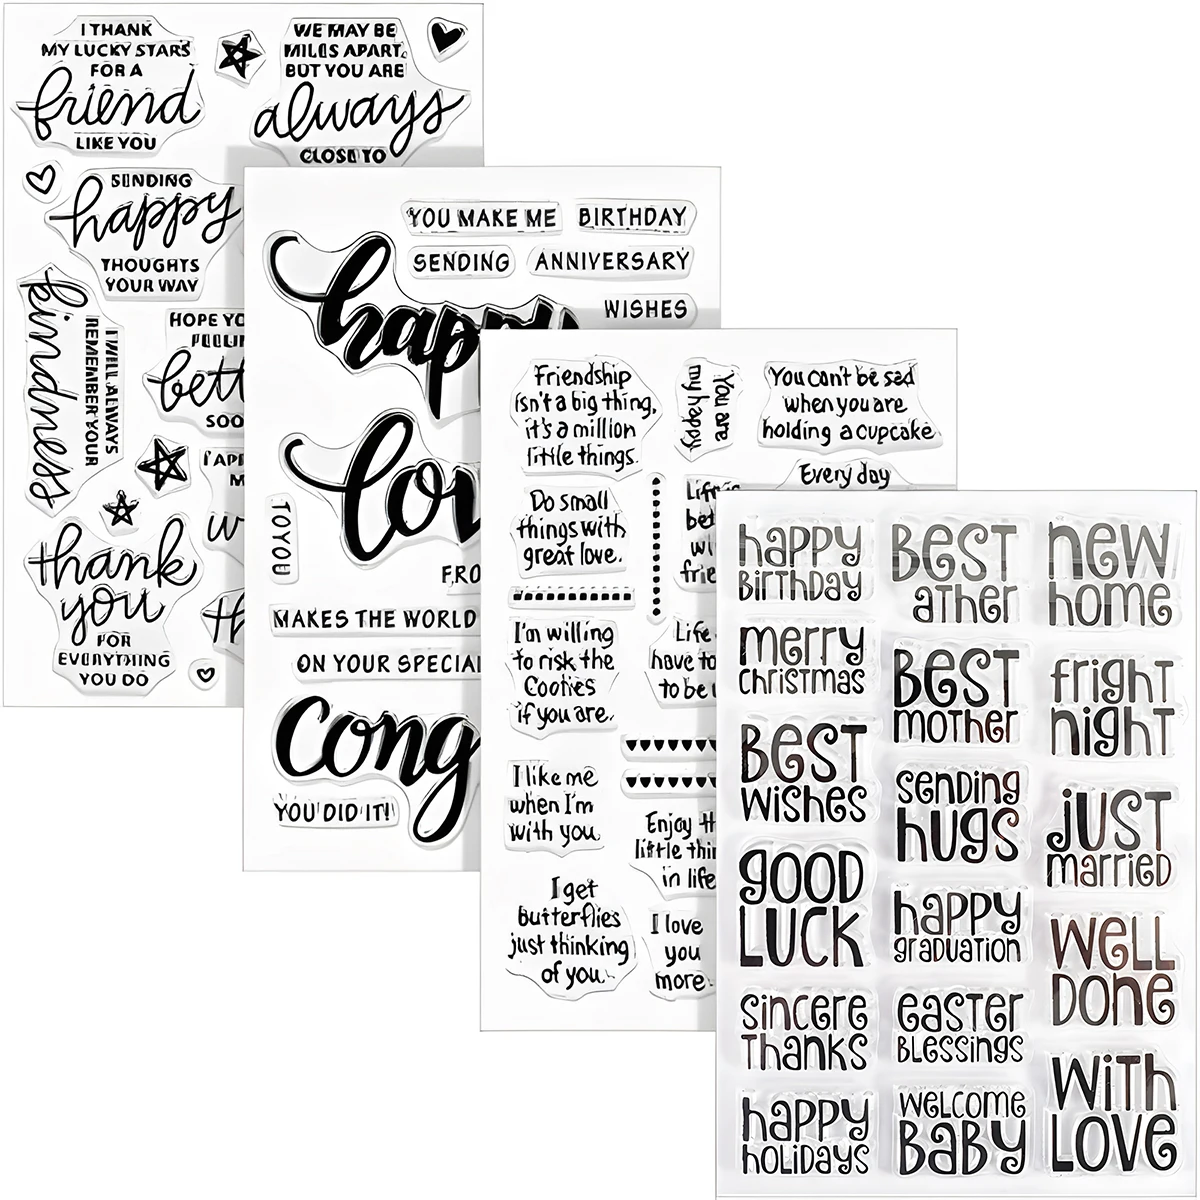 I THANK
MY LUCKY STARS
FOR A
friend
LIKE YOU
WE MAY BE
MILES APART,
BUT YOU ARE
always
CLOSE TO
SENDING
happy
THOUGHTS
YOUR WAY
kindness
I WILL ALWAYS
REMEMBER YOUR
HOPE
SOO
thank
you
FOR
EVERYTHING
YOU DO
YOU MAKE ME
BIRTHDAY
SENDING
ANNIVERSARY
WISHES
happy
lov
TO YOU
FRO
MAKES THE WORLD
ON YOUR SPECIAL
Cong
YOU DID IT!
Friendship
isn't a big thing,
it's a million
little things.
You are
my happy
You can't be sad
when you are
holding a cupcake
Every day
Do small
things with
great love.
Life's
bet
wi
frie
I'm willing
to risk the
Cooties
if you are.
Life
have to
to be
I like me
when I'm
with you.
Enjoy th
little thin
in life
I get
butterflies
just thinking
of you.
I love
you
more
happy
BirthDay
BEST
aTher
new
home
merry
christmas
BEST
mother
fright
night
BEST
wishes
sending
hugs
JUST
married
GOOD
LUCK
happy
graduation
WELL
DONE
sincere
Thanks
easter
BLESSINGS
WITH
LOVE
happy
HOLIDAYS
WELCOME
BABY